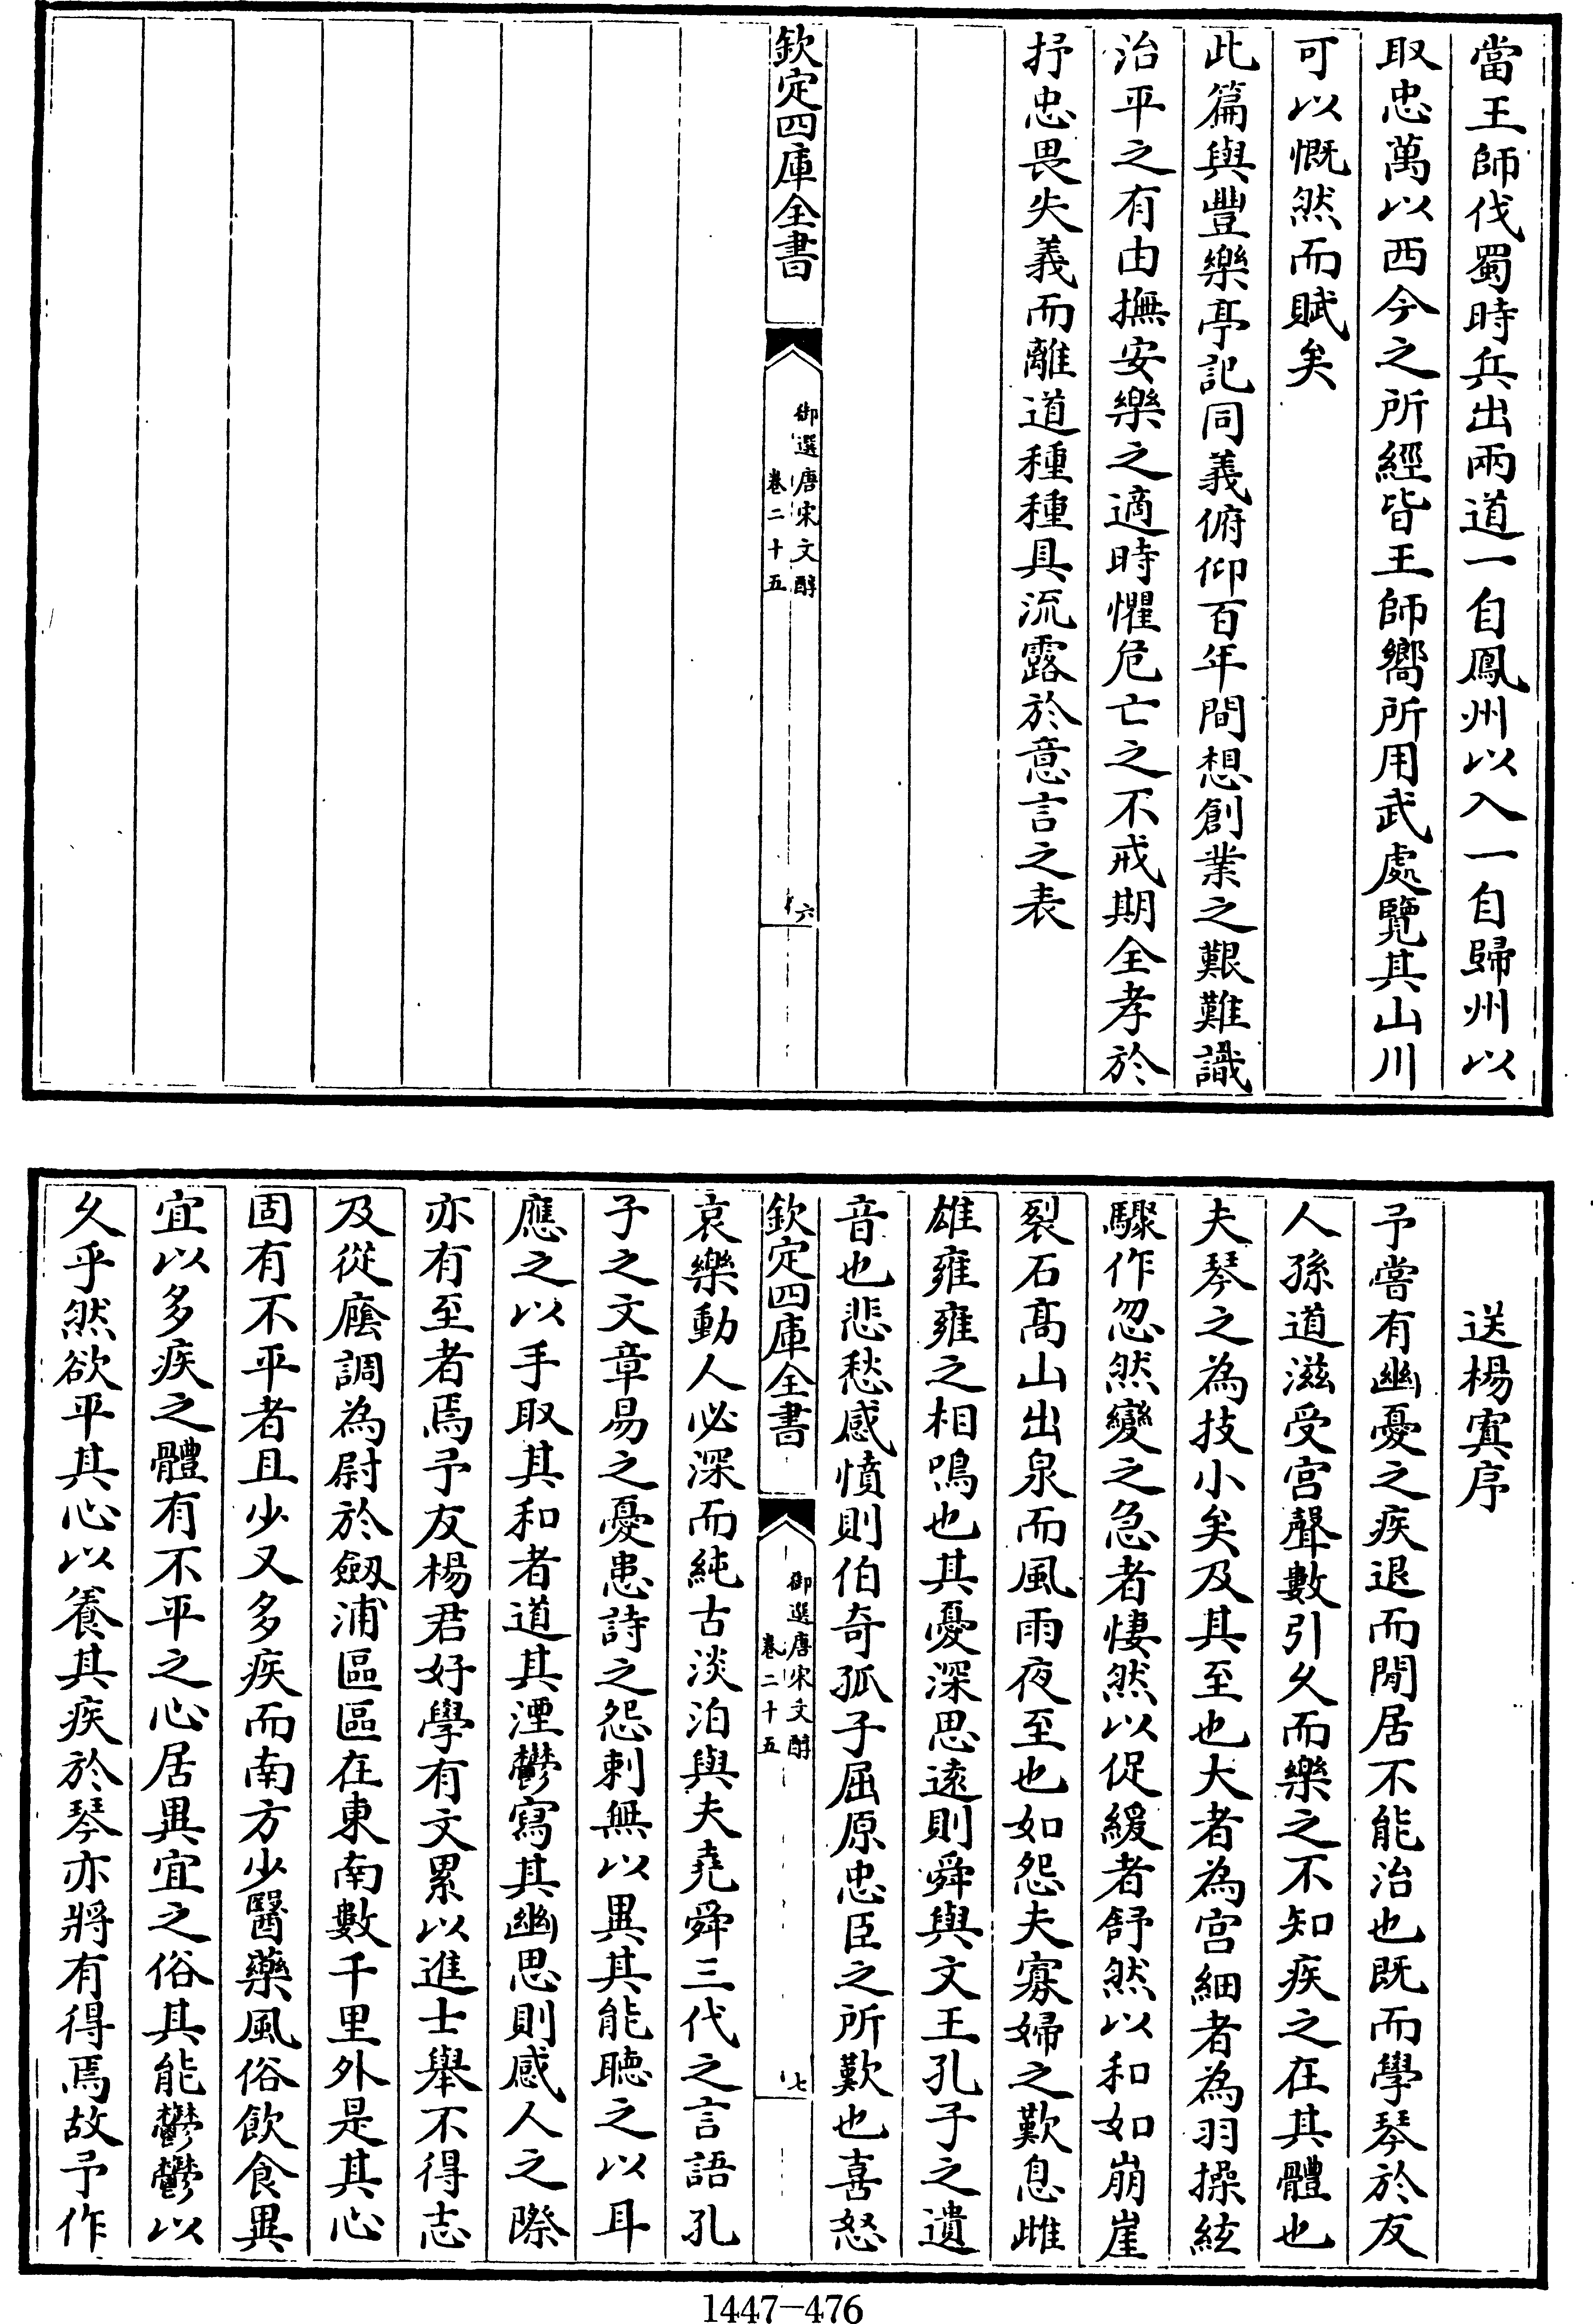 當王師伐蜀時兵出兩道一自鳳州以入一自歸州以
取忠萬以西今之所經皆王師嚮所用武處覽其山川
可以慨然而賦矣
此篇與豐樂亭記同義俯仰百年間想創業之艱難識
治平之有由撫安樂之適時懼危亡之不戒期全孝於
抒忠畏失義而離道種種具流露於意言之表
欽定四庫全書
御選唐宋文醇
卷二十五
六
送楊寘序
予嘗有幽憂之疾退而閒居不能治也既而學琴於友
人孫道滋受宫聲數引久而樂之不知疾之在其體也
夫琴之為技小矣及其至也大者為宫細者為羽操絃
驟作忽然變之急者悽然以促緩者舒然以和如崩崖
裂石高山出泉而風雨夜至也如怨夫寡婦之歎息雌
雄雍雍之相鳴也其憂深思逺則舜與文王孔子之遺
音也悲愁感憤則伯奇孤子屈原忠臣之所歎也喜怒
欽定四庫全書
御選唐宋文醇
卷二十五
七
哀樂動人必深而純古淡泊與夫堯舜三代之言語孔
子之文章易之憂患詩之怨刺無以異其能聽之以耳
應之以手取其和者道其湮鬱寫其幽思則感人之際
亦有至者焉予友楊君好學有文累以進士舉不得志
及從廕調為尉於劔浦區區在東南數千里外是其心
固有不平者且少又多疾而南方少醫藥風俗飲食異
宜以多疾之體有不平之心居異宜之俗其能鬱鬱以
久乎然欲平其心以養其疾於琴亦將有得焉故予作
1447-476